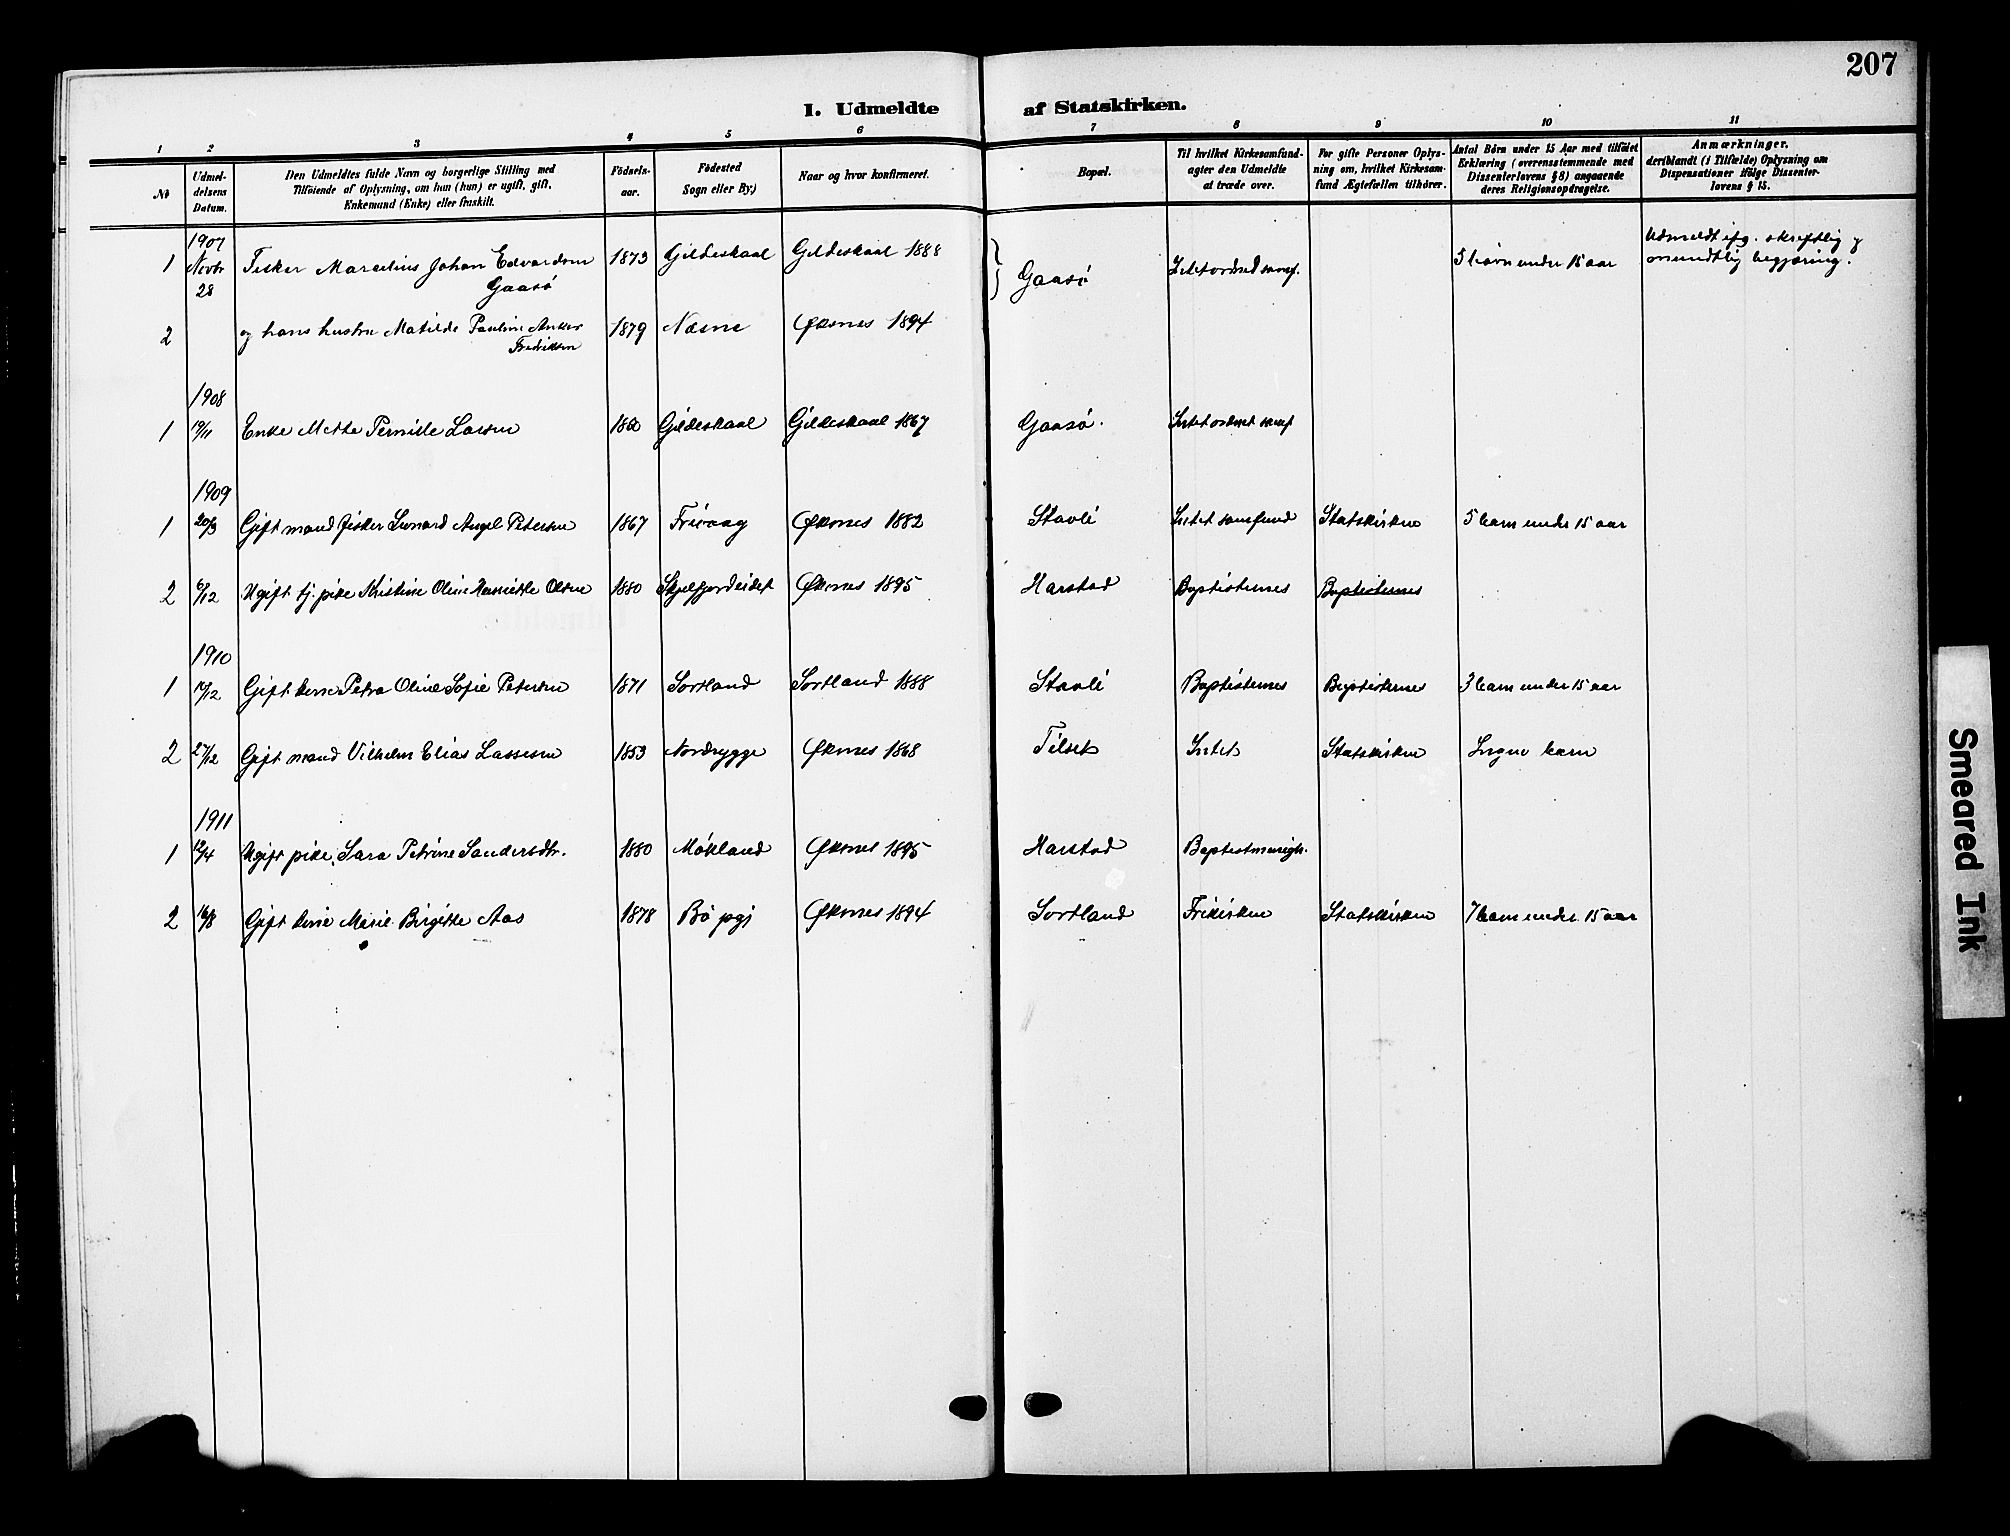 207
I. Udmeldte af Statskirken.
1 2 3 4 5 6 7 8 9 10 11
№
Udmeldelsens Datum.
Den Udmeldtes fulde Navn og borgerlige Stilling med
Tilföiende af Oplysning, om hun (hun) er ugift, gift,
Enkemand (Enke) eller fraskilt.
Födsels-
aar.
Födested
Sogn eller By)
Naar og hvor konfirmeret.
Bopæl.
Til hvilket Kirkesamfund-
agter den Udmeldte
at træde over.
For gifte Personer Oplys-
ning om, hvilket Kirkesam-
fund Ægtefællen tilhörer.
Antal Börn under 15 Aar med tilföiet
Erklæring (overensstemmende med
Dissenterlovens § 8) angaaende
deres Religionsopdragelse.
Anmærkninger.
deriblandt (i Tilfælde) Oplysning om
Dispensationer ifölge Dissenter-
lovens § 15.
1907
1 Novbr 28 Fisker Marcelius Johan Edvardsen Gaasö 1873 Gildeskaal Gildeskaal 1888 Gaasö Intet ordned samf. 5 börn under 15 aar Udmeldt ifg. skriftlig og mundtlig begjæring.
2 og hans hustru Matilde Pauline Anker Fredriksen 1879 Næsne Øksnes 1894
1908
1 19/11 Enke Mette Pernille Larsen Gildeskaal Gildeskaal 1867 Gaasö. Intet ordnet samf
1909
1 20/3 Gift mand fisker Leonard Angel Petersen 1867 Frivaag Øksnes 1882 Stavli Intet samfund Statskirken 5 barn under 15 aar
2 6/12 Ugift tj. pike Kristine Oline Henriette Olsen 1880 Skjelfjordeidet Øksnes 1895 Harstad Baptisternes Baptisternes
1910
1 12/12 Gift kone Petra Oline Sofie Petersen 1871 Sortland Sortland 1888 Stavli Baptisternes Baptisternes 3 barn under 15 aar
2 27/12 Gift mand Vilhelm Elias Lassesen 1853 Nordrygge Øksnes 1868 Tilset Intet Statskirken Ingen barn
1911
1 12/4 Ugift pike Sara Petrine Sandersdtr. 1880 Mökland Øksnes 1895 Harstad Baptistmenigh.
2 16/8 Gift kone Marie Birgitte Aas 1878 Bö pgj Øksnes 1894 Sortland Frikirken Statskirken 7 barn under 15 aar
Smeared Ink